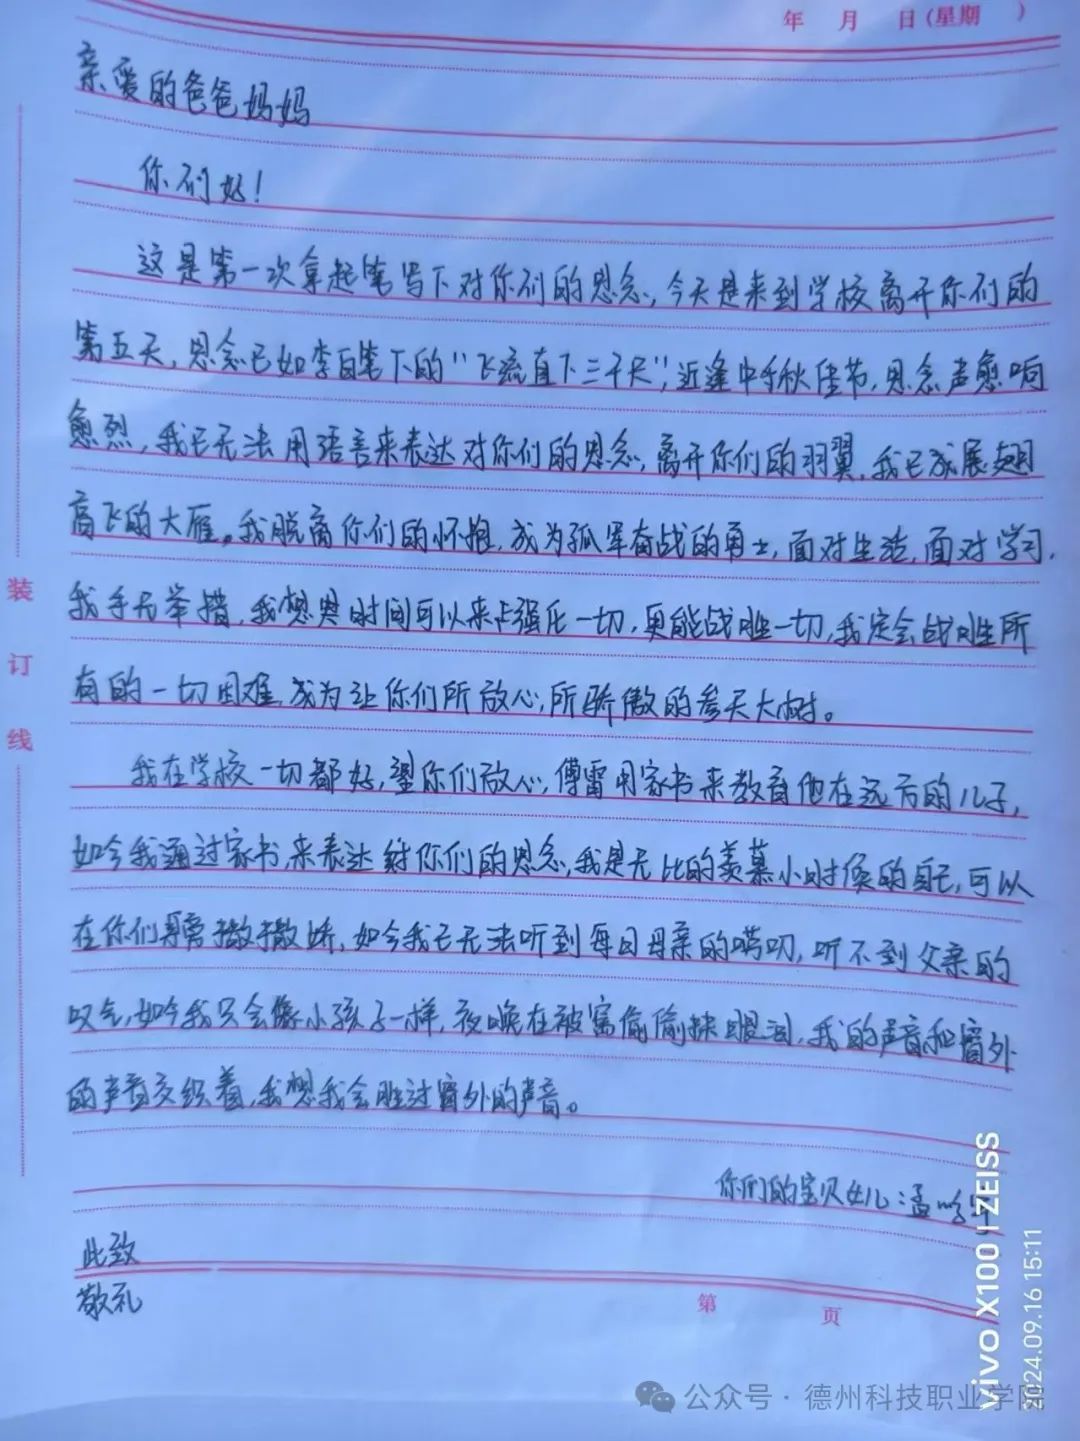 年 月 日(星期 )
亲爱的爸爸妈妈
你们好!
这是第一次拿起笔写下对你们的思念,今天是来到学校离开你们的
第五天,思念已如李白笔下的"飞流直下三千尺",近逢中秋佳节,思念声愈响
愈烈,我已无法用语言来表达对你们的思念,离开你们的羽翼,我已成展翅
高飞的大雁。我脱离你们的怀抱,成为孤军奋战的勇士,面对生活,面对学习,
我手无举措,我想果时间可以来占强化一切,更能战胜一切,我定会战胜所
有的一切困难,成为让你们所放心,所骄傲的参天大树。
我在学校一切都好,望你们放心,傅雷用家书来教育他在远方的儿子,
如今我通过家书,来表达对你们的思念,我是无比的羡慕小时候的自己,可以
在你们身旁撒撒娇,如今我已无法听到每日母亲的唠叨,听不到父亲的
叹气,如今我只会像小孩子一样,夜晚在被窝偷偷抹眼泪,我的声音和窗外
的声音交织着,我想我会胜过窗外的声音。
你们的宝贝女儿:孟
此致
敬礼
第 页
装
订
线
vivo X100 | ZEISS
2024.09.16 15:11
公众号·德州科技职业学院